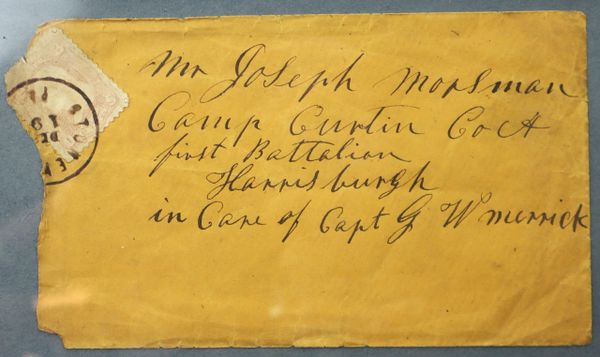 Mr Joseph Morsman
Camp Curtin Co A
first Battalion
Harrisburgh
in Care of Capt G W merrick
19